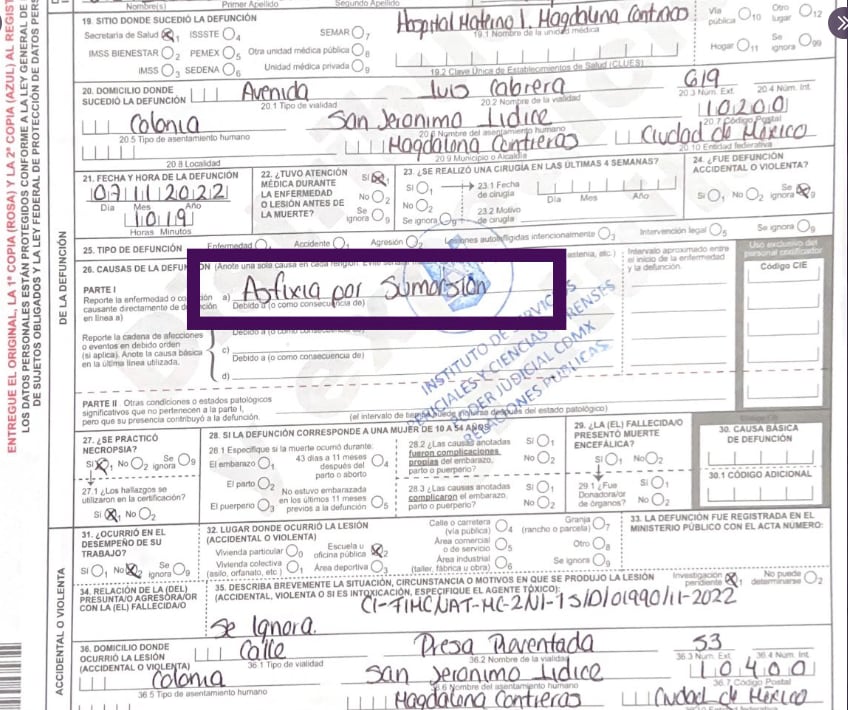 Nombre(s) Primer Apellido Segundo Apellido
19. SITIO DONDE SUCEDIÓ LA DEFUNCIÓN
Hospital Materno I. Magdalena Contreras
19.1 Nombre de la unidad médica
Secretaría de Salud 1 ISSSTE 4 SEMAR 7
IMSS BIENESTAR 2 PEMEX 5 Otra unidad médica pública 8
IMSS 3 SEDENA 6 Unidad médica privada 9
19.2 Clave Única de Establecimientos de Salud (CLUES)
Vía pública 10 Otro lugar 12
Hogar 11 Se ignora 99
20. DOMICILIO DONDE SUCEDIÓ LA DEFUNCIÓN
Avenida Luis Cabrera 619
20.1 Tipo de vialidad 20.2 Nombre de la vialidad 20.3 Núm. Ext. 20.4 Núm. Int.
Colonia San Jeronimo Lidice 10200
20.5 Tipo de asentamiento humano 20.6 Nombre del asentamiento humano 20.7 Código Postal
Magdalena Contreras Ciudad de México
20.8 Localidad 20.9 Municipio o Alcaldía 20.10 Entidad federativa
21. FECHA Y HORA DE LA DEFUNCIÓN
07 11 2022
Día Mes Año
10 19
Horas Minutos
22. ¿TUVO ATENCIÓN MÉDICA DURANTE LA ENFERMEDAD O LESIÓN ANTES DE LA MUERTE?
Sí No 2 Se ignora 9
23. ¿SE REALIZÓ UNA CIRUGÍA EN LAS ÚLTIMAS 4 SEMANAS?
Sí 1 No 2 Se ignora 9
23.1 Fecha de cirugía Día Mes Año
23.2 Motivo de cirugía
24. ¿FUE DEFUNCIÓN ACCIDENTAL O VIOLENTA?
Sí 1 No 2 Se ignora 9
25. TIPO DE DEFUNCIÓN Enfermedad Accidente 1 Agresión 2 Lesiones autoinfligidas intencionalmente 3 Intervención legal 5 Se ignora 9
26. CAUSAS DE LA DEFUN ÓN (Anote una sola causa en cada renglón. Evite señalar astenia, etc.)
Intervalo aproximado entre el inicio de la enfermedad y la defunción.
Uso exclusivo del personal codificador
Código CIE
PARTE I
Reporte la enfermedad o co ión causante directamente de de ción en línea a)
a) Asfixia por Sumersión
Debido a (o como consecuencia de)
Reporte la cadena de afecciones o eventos en debido orden (si aplica). Anote la causa básica en la última línea utilizada.
Debido a (o como consecuencia de)
c)
Debido a (o como consecuencia de)
d)
INSTITUTO DE SERVICIOS
PERICIALES Y CIENCIAS FORENSES
PODER JUDICIAL CDMX
RELACIONES PÚBLICAS
PARTE II. Otras condiciones o estados patológicos significativos que no pertenecen a la parte I, pero que su presencia contribuyó a la defunción.
(el intervalo de tiempo puede incluirse después del estado patológico)
27. ¿SE PRACTICÓ NECROPSIA?
Sí 1 No 2 Se ignora 9
27.1 ¿Los hallazgos se utilizaron en la certificación?
Sí 1 No 2
28. SI LA DEFUNCIÓN CORRESPONDE A UNA MUJER DE 10 A 54 AÑOS
28.1 Especifique si la muerte ocurrió durante:
El embarazo 1 43 días a 11 meses después del parto o aborto 4
El parto 2 No estuvo embarazada en los últimos 11 meses previos a la defunción 5
El puerperio 3
28.2 ¿Las causas anotadas fueron complicaciones propias del embarazo, parto o puerperio?
Sí 1 No 2
28.3 ¿Las causas anotadas complicaron el embarazo, parto o puerperio?
Sí 1 No 2
29. ¿LA (EL) FALLECIDA/O PRESENTÓ MUERTE ENCEFÁLICA?
Sí 1 No 2
29.1 ¿Fue Donadora/or de órganos?
Sí 1 No 2
30. CAUSA BÁSICA DE DEFUNCIÓN
30.1 CÓDIGO ADICIONAL
31. ¿OCURRIÓ EN EL DESEMPEÑO DE SU TRABAJO?
Sí 1 No 2 Se ignora 9
32. LUGAR DONDE OCURRIÓ LA LESIÓN (ACCIDENTAL O VIOLENTA)
Vivienda particular 0 Escuela u oficina pública 2 Calle o carretera (vía pública) 4 Granja (rancho o parcela) 7
Vivienda colectiva (asilo, orfanato, etc.) 1 Área deportiva 3 Área comercial o de servicio 5 Otro 8
Área industrial (taller, fábrica u obra) 6 Se ignora 9
33. LA DEFUNCIÓN FUE REGISTRADA EN EL MINISTERIO PÚBLICO CON EL ACTA NÚMERO:
34. RELACIÓN DE LA (DEL) PRESUNTA/O AGRESORA/OR CON LA (EL) FALLECIDA/O
35. DESCRIBA BREVEMENTE LA SITUACIÓN, CIRCUNSTANCIA O MOTIVOS EN QUE SE PRODUJO LA LESIÓN (ACCIDENTAL, VIOLENTA O SI ES INTOXICACIÓN, ESPECIFIQUE EL AGENTE TÓXICO):
Investigación pendiente 1 No puede determinarse 2
Se Ignora.
36. DOMICILIO DONDE OCURRIÓ LA LESIÓN (ACCIDENTAL O VIOLENTA)
Calle Presa Reventada 53
36.1 Tipo de vialidad 36.2 Nombre de la vialidad 36.3 Núm. Ext. 36.4 Núm. Int.
Colonia San Jeronimo Lidice 10400
36.5 Tipo de asentamiento humano 36.6 Nombre del asentamiento humano 36.7 Código Postal
Magdalena Contreras Ciudad de México
DE LA DEFUNCIÓN
ACCIDENTAL O VIOLENTA
ENTREGUE EL ORIGINAL, LA 1ª COPIA (ROSA) Y LA 2ª COPIA (AZUL) AL REGIST
LOS DATOS PERSONALES ESTÁN PROTEGIDOS CONFORME A LA LEY GENERAL DE
DE SUJETOS OBLIGADOS Y LA LEY FEDERAL DE PROTECCIÓN DE DATOS PERS